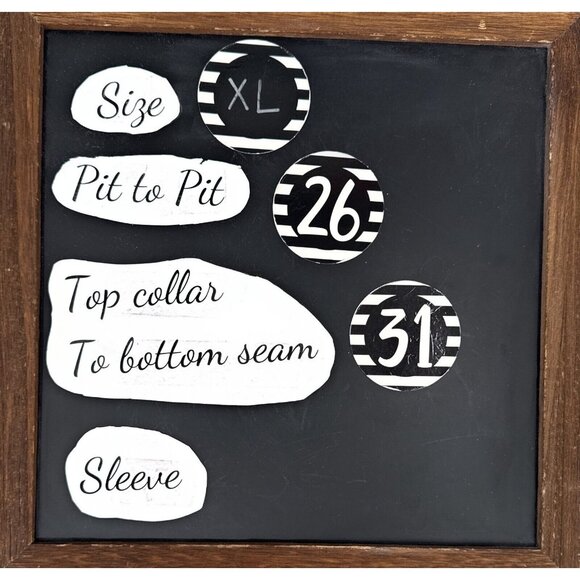 Size XL
Pit to Pit 26
Top collar
To bottom seam 31
Sleeve